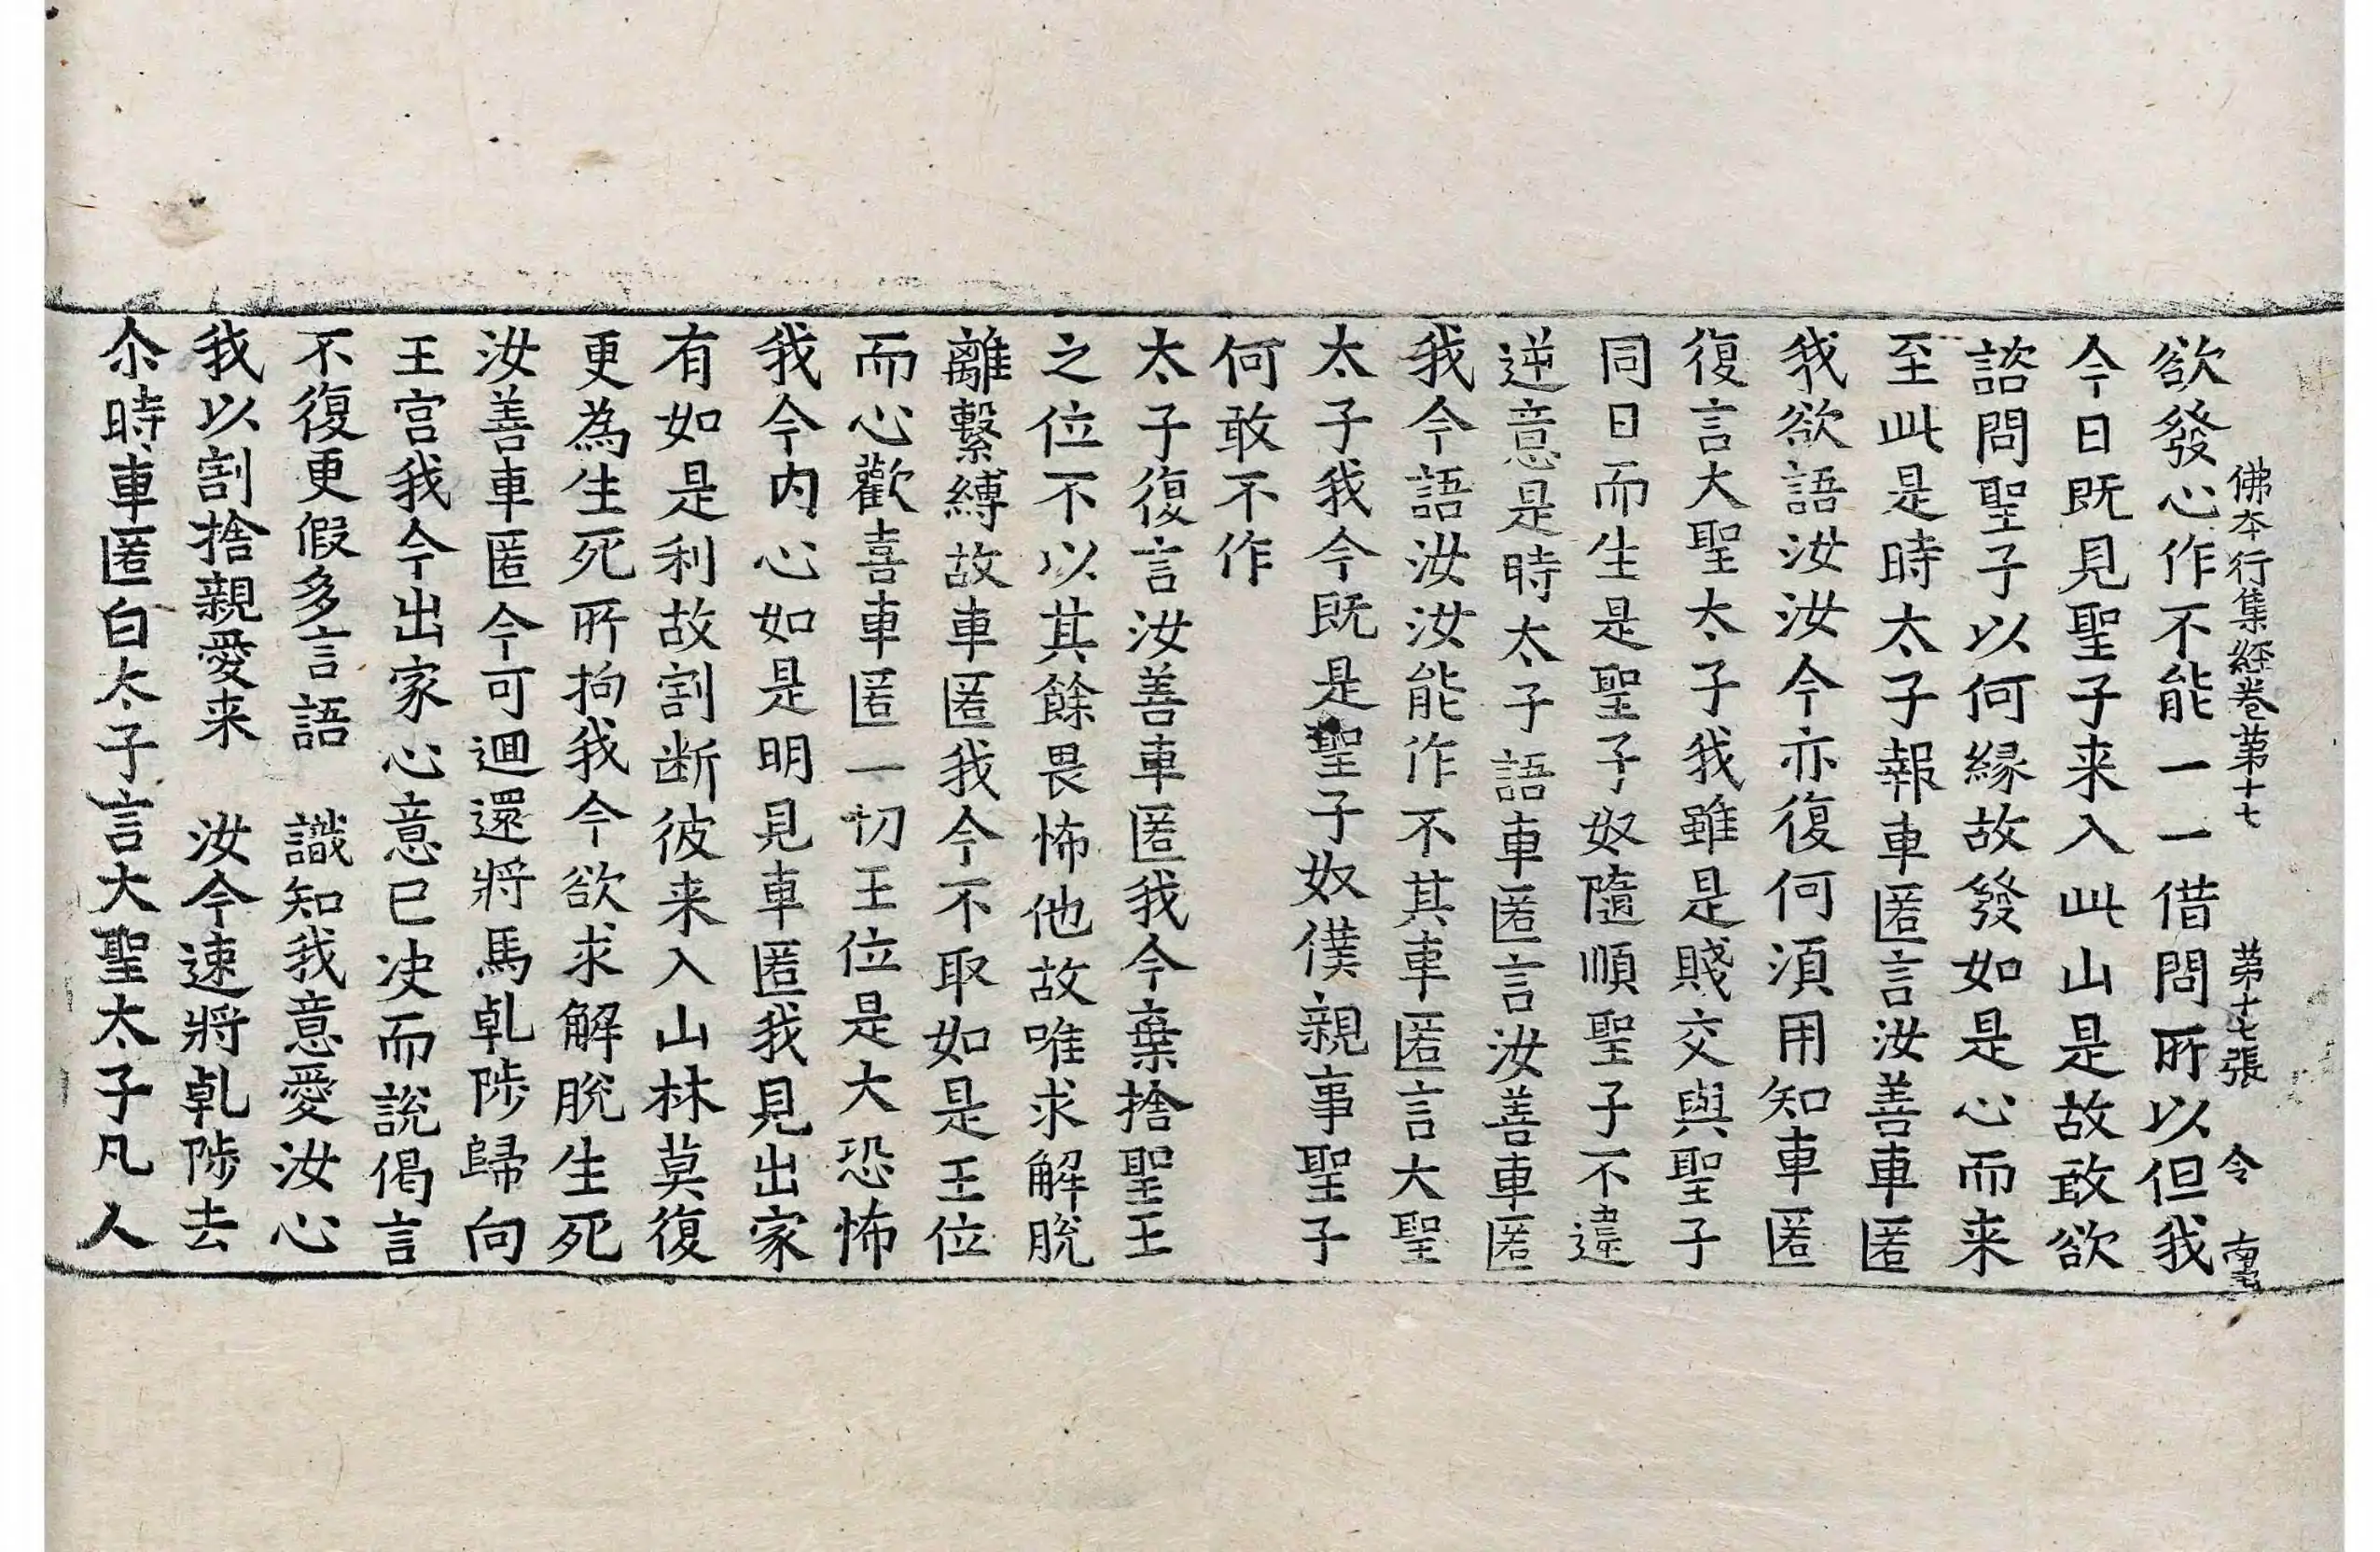 佛本行集経卷苐十七 苐十七張 令
欲發心作不能一一借問所以但我
今日既見聖子来入此山是故敢欲
諮問聖子以何縁故發如是心而来
至此是時太子報車匿言汝善車匿
我欲語汝汝今亦復何須用知車匿
復言大聖太子我雖是賤交與聖子
同日而生是聖子奴隨順聖子不違
逆意是時太子語車匿言汝善車匿
我今語汝汝能作不其車匿言大聖
太子我今既是聖子奴僕親事聖子
何敢不作
太子復言汝善車匿我今棄捨聖王
之位不以其餘畏怖他故唯求解脫
離繫縛故車匿我今不取如是王位
而心歡喜車匿一切王位是大恐怖
我今内心如是明見車匿我見出家
有如是利故割断彼来入山林莫復
更為生死所拘我今欲求解脫生死
汝善車匿今可迴還將馬乹陟歸向
王宫我今出家心意已决而說偈言
不復更假多言語 識知我意愛汝心
我以割捨親愛来 汝今速將乹陟去
尒時車匿白太子言大聖太子凡人